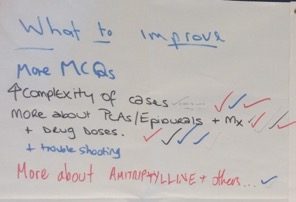 What to improve
More MCQs
↑ Complexity of cases
More about PCAs/Epidurals + Mx
+ Drug Doses.
+ trouble shooting
More about AMITRIPTYLLINE + others...